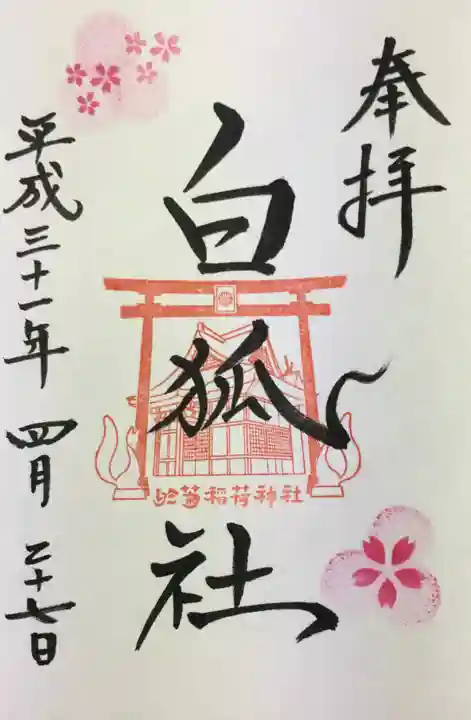 奉拝
白狐社
於菊稲荷神社
平成三十一年四月二十七日